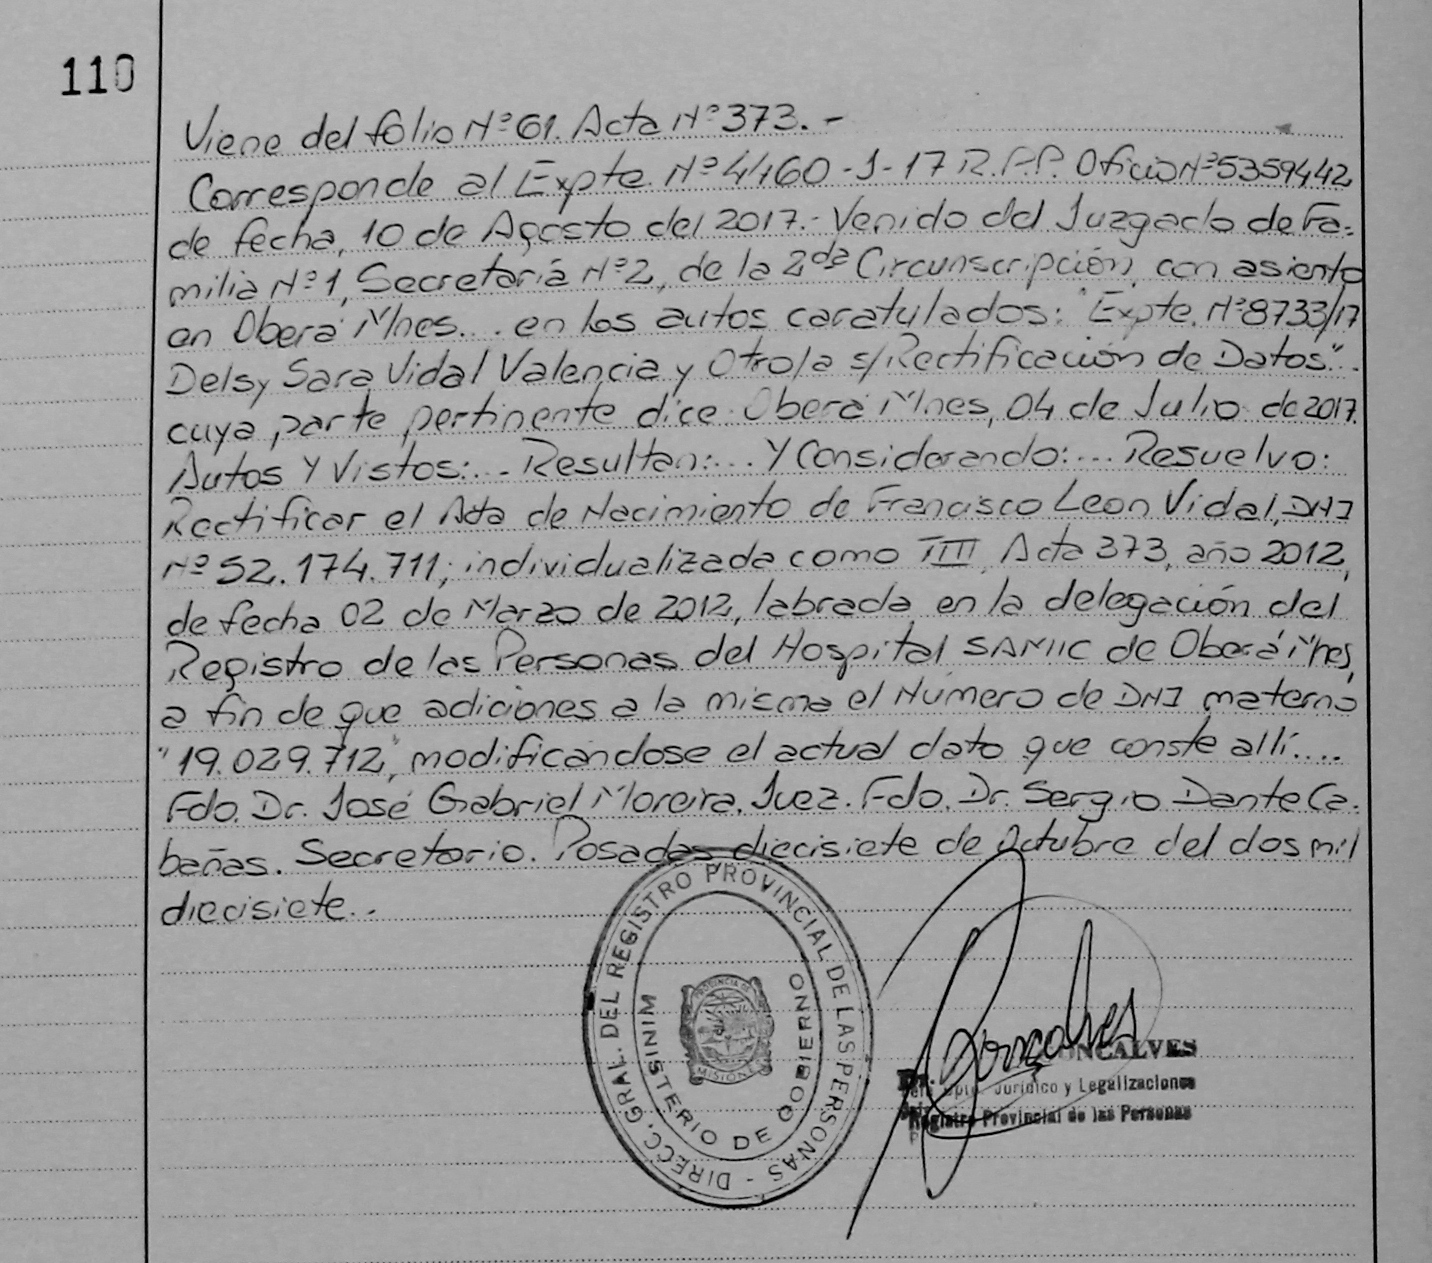 110
Viene del folio Nº 61. Acta Nº 373.-
Corresponde al Expte. Nº 4460-J-17 R.P.P. Oficio Nº 5359442
de fecha, 10 de Agosto del 2017.- Venido del Juzgado de Fa-
milia Nº 1, Secretaria Nº 2, de la 2da Circunscripción, con asiento
en Oberá Mnes... en los autos caratulados: "Expte. Nº 8733/17
Delsy Sara Vidal Valencia y Otro/a s/Rectificación de Datos"..
cuya parte pertinente dice: Oberá Mnes, 04 de Julio de 2017.
Autos Y Vistos:... Resultan:... Y Considerando:... Resuelvo:
Rectificar el Acta de Nacimiento de Francisco Leon Vidal, DNI
Nº 52.174.711; individualizada como TIII, Acta 373, año 2012,
de fecha 02 de Marzo de 2012, labrada en la delegación del
Registro de las Personas del Hospital SAMIC de Oberá Mnes,
a fin de que adiciones a la misma el Número de DNI materno
"19.029.712", modificándose el actual dato que conste allí....
Fdo. Dr. José Gabriel Moreira. Juez. Fdo. Dr. Sergio Dante Ca-
bañas. Secretario. Posadas diecisiete de Octubre del dos mil
diecisiete..
DIRECC. GRAL. DEL REGISTRO PROVINCIAL DE LAS PERSONAS -
MINISTERIO DE GOBIERNO
PROVINCIA DE
MISIONES
Gonçalves
GONCALVES
Dpto. Jurídico y Legalizaciones
Registro Provincial de las Personas